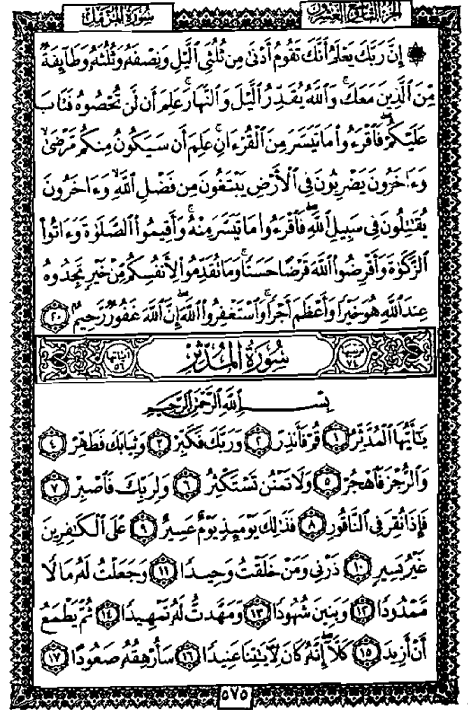 سُورَةُ المُزَّمِّلِ
الجُزءُ التَّاسِعُ وَالعِشْرُونَ
۞ إِنَّ رَبَّكَ يَعْلَمُ أَنَّكَ تَقُومُ أَدْنَىٰ مِن ثُلُثَىِ ٱلَّيْلِ وَنِصْفَهُۥ وَثُلُثَهُۥ وَطَآئِفَةٌ
مِّنَ ٱلَّذِينَ مَعَكَ ۚ وَٱللَّهُ يُقَدِّرُ ٱلَّيْلَ وَٱلنَّهَارَ ۚ عَلِمَ أَن لَّن تُحْصُوهُ فَتَابَ
عَلَيْكُمْ ۖ فَٱقْرَءُوا۟ مَا تَيَسَّرَ مِنَ ٱلْقُرْءَانِ ۚ عَلِمَ أَن سَيَكُونُ مِنكُم مَّرْضَىٰ ۙ
وَءَاخَرُونَ يَضْرِبُونَ فِى ٱلْأَرْضِ يَبْتَغُونَ مِن فَضْلِ ٱللَّهِ ۙ وَءَاخَرُونَ
يُقَـٰتِلُونَ فِى سَبِيلِ ٱللَّهِ ۖ فَٱقْرَءُوا۟ مَا تَيَسَّرَ مِنْهُ ۚ وَأَقِيمُوا۟ ٱلصَّلَوٰةَ وَءَاتُوا۟
ٱلزَّكَوٰةَ وَأَقْرِضُوا۟ ٱللَّهَ قَرْضًا حَسَنًا ۚ وَمَا تُقَدِّمُوا۟ لِأَنفُسِكُم مِّنْ خَيْرٍ تَجِدُوهُ
عِندَ ٱللَّهِ هُوَ خَيْرًا وَأَعْظَمَ أَجْرًا ۚ وَٱسْتَغْفِرُوا۟ ٱللَّهَ ۖ إِنَّ ٱللَّهَ غَفُورٌ رَّحِيمٌۢ ٢٠
ترتيبها ٧٤ سُورَةُ المُدَّثِّرِ آياتها ٥٦
بِسْمِ ٱللَّهِ ٱلرَّحْمَـٰنِ ٱلرَّحِيمِ
يَـٰٓأَيُّهَا ٱلْمُدَّثِّرُ ١ قُمْ فَأَنذِرْ ٢ وَرَبَّكَ فَكَبِّرْ ٣ وَثِيَابَكَ فَطَهِّرْ ٤
وَٱلرُّجْزَ فَٱهْجُرْ ٥ وَلَا تَمْنُن تَسْتَكْثِرُ ٦ وَلِرَبِّكَ فَٱصْبِرْ ٧
فَإِذَا نُقِرَ فِى ٱلنَّاقُورِ ٨ فَذَٰلِكَ يَوْمَئِذٍ يَوْمٌ عَسِيرٌ ٩ عَلَى ٱلْكَـٰفِرِينَ
غَيْرُ يَسِيرٍ ١٠ ذَرْنِى وَمَنْ خَلَقْتُ وَحِيدًا ١١ وَجَعَلْتُ لَهُۥ مَالًا
مَّمْدُودًا ١٢ وَبَنِينَ شُهُودًا ١٣ وَمَهَّدتُّ لَهُۥ تَمْهِيدًا ١٤ ثُمَّ يَطْمَعُ
أَنْ أَزِيدَ ١٥ كَلَّآ ۖ إِنَّهُۥ كَانَ لِـَٔايَـٰتِنَا عَنِيدًا ١٦ سَأُرْهِقُهُۥ صَعُودًا ١٧
٥٧٥